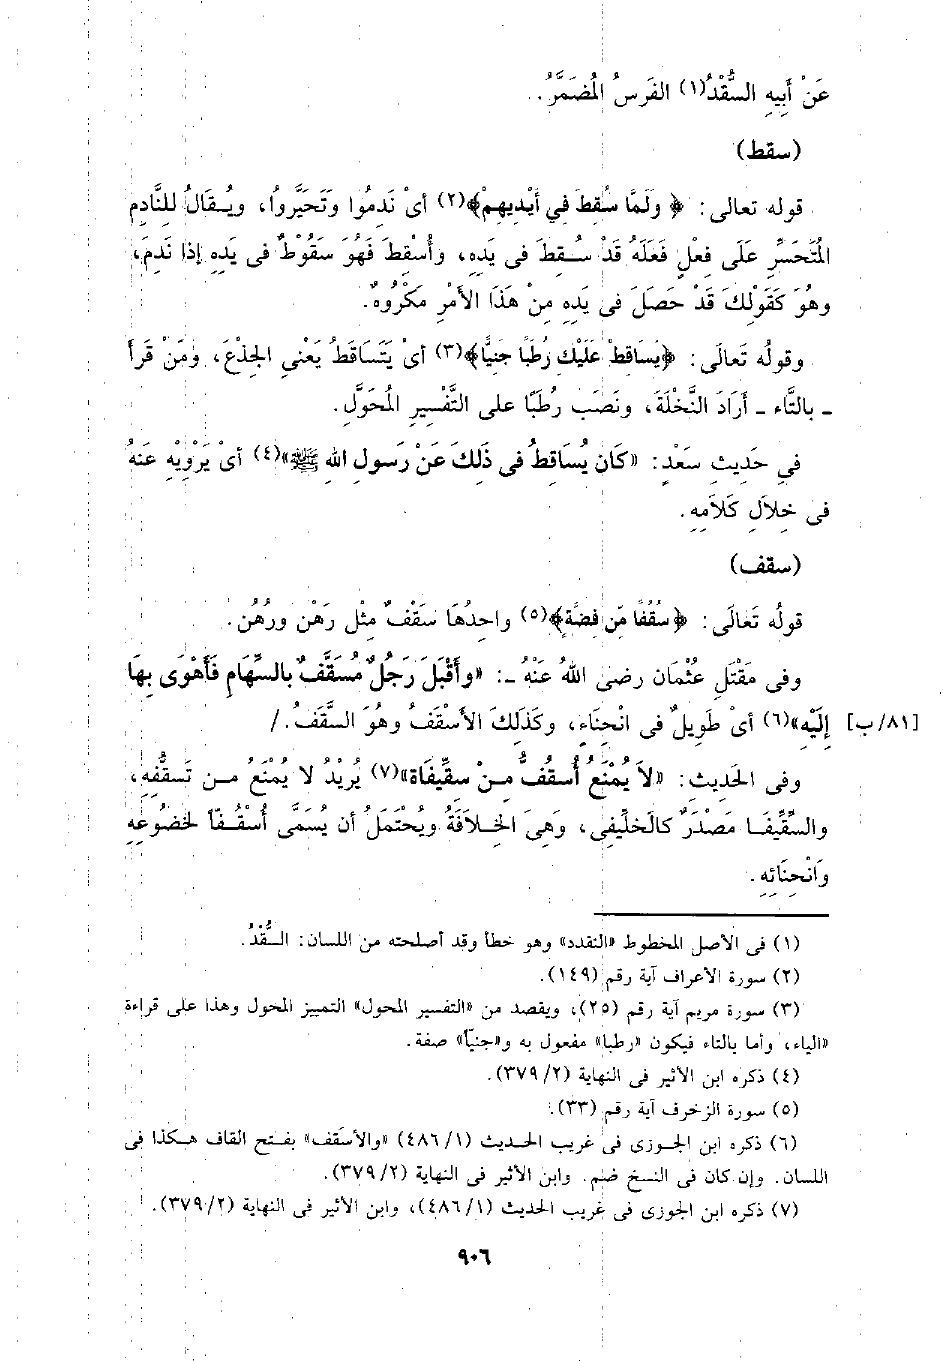 عَنْ أَبِيهِ السُّقْدُ(١) الفَرَسُ المُضَمَّرُ.
(سقط)
قوله تعالى: ﴿وَلَمَّا سُقِطَ فِي أَيْدِيهِمْ﴾(٢) أىْ نَدِمُوا وَتَحَيَّرُوا، ويُـقَالُ لِلنَّادِمِ
المُتَحَسِّرِ عَلَى فِعْلٍ فَعَلَهُ قَدْ سُـقِطَ فى يَدِهِ، وأُسْقِطَ فَهُوَ سَقُوطٌ فى يَدِهِ إذا نَدِمَ،
وهُوَ كَقَوْلِكَ قَدْ حَصَلَ فى يَدِهِ مِنْ هَذَا الأَمْرِ مَكْرُوهٌ.
وقولُه تَعالَى: ﴿يَسَاقَطْ عَلَيْكِ رُطَبًا جَنِيًّا﴾(٣) أىْ يَتَسَاقَطُ يَعْنِي الجِذْعَ، وَمَنْ قَرأَ
ـ بالتَّاءِ ـ أَرَادَ النَّخْلَةَ، ونَصَبَ رُطَبًا على التَّفْسِيرِ المُحَوَّلِ.
فى حَدِيثِ سَعْدٍ: «كَانَ يُسَاقِطُ فى ذَلِكَ عَنْ رَسولِ اللهِ ﷺ»(٤) أىْ يَرْوِيْهِ عَنْهُ
فى خِلاَلِ كَلاَمِهِ.
(سقف)
قولُه تَعَالَى: ﴿سُقُفًا مِّن فِضَّةٍ﴾(٥) واحِدُهَا سَقْفٌ مِثْل رَهْن ورُهُن.
وفى مَقْتَلِ عُثْمَان رضى اللهُ عَنْهُ ـ: «وأَقْبَلَ رَجُلٌ مُسَقَّفٌ بالسِّهَامِ فَأَهْوَى بِهَا
[٨١/ب] إِلَيْهِ»(٦) أىْ طَوِيلٌ فى انْحِنَاءٍ، وكَذَلِكَ الأَسْقَفُ وهُوَ السَّقَفُ./
وفى الحَدِيث: «لاَ يُمْنَعُ أُسقُفٌ مـنْ سِقِّيفَاهُ»(٧) يُرِيْدُ لا يُمْنَعُ مـن تَسقُّفِهِ،
والسِّقِّيفَـا مَصْدَرٌ كالخِلِّيفى، وَهِىَ الخِـلاَفَةُ ويُحْتَمَلُ أن يُسَمَّى أُسْقُـفّاً لخضُوعِه
وَانْحِنَائِهِ.
(١) فى الأصل المخطوط «النقدد» وهو خطأ وقد أصلحته من اللسان: السُّقْدُ.
(٢) سورة الأعراف آية رقم (١٤٩).
(٣) سورة مريم آية رقم (٢٥)، ويقصد من «التفسير المحول» التمييز المحول وهذا على قراءة
«الياء، وأما بالتاء فيكون «رطبا» مفعول به و«جنيّاً» صفة.
(٤) ذكره ابن الأثير فى النهاية (٣٧٩/٢).
(٥) سورة الزخرف آية رقم (٣٣).
(٦) ذكره ابن الجـوزى فى غريب الحـديث (٤٨٦/١) «والأسقف» بفـتح القاف هـكذا فى
اللسان. وإن كان فى النسخ ضم. وابن الأثير فى النهاية (٣٧٩/٢).
(٧) ذكره ابن الجوزى فى غريب الحديث (٤٨٦/١)، وابن الأثير فى النهاية (٣٧٩/٢).
٩٠٦